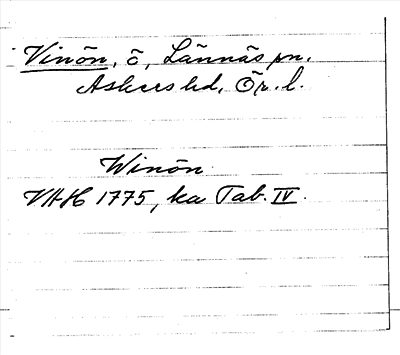 Vinön, ö, Lännäs sn.
Askers hd, Ör. l.
Winön
VAH 1775, ka Tab. IV.